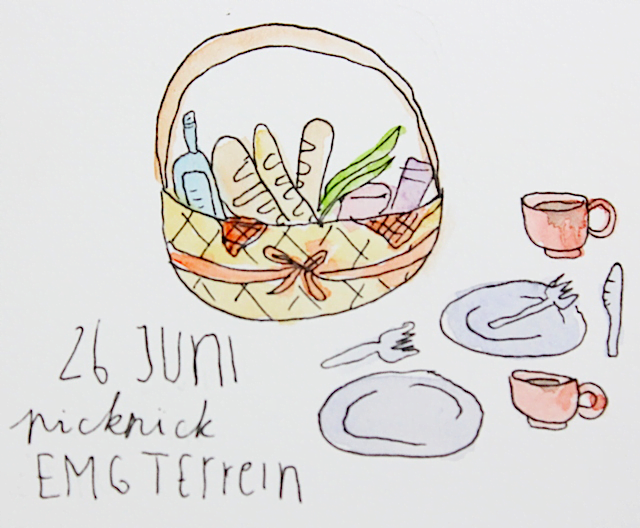 26 JUNI
picknick
EMG Terrein